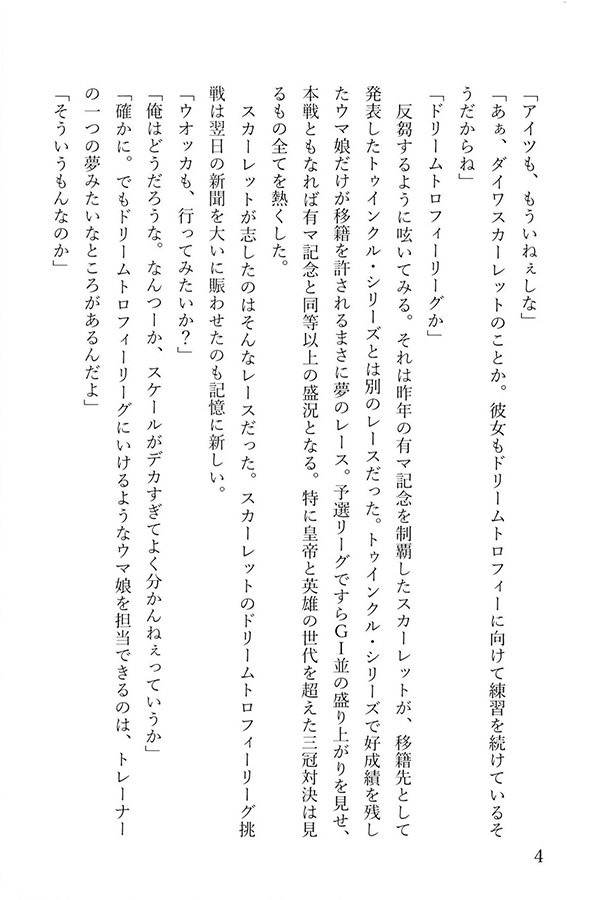 「アイツも、もういねぇしな」
「あぁ、ダイワスカーレットのことか。彼女もドリームトロフィーに向けて練習を続けているそ
うだからね」
「ドリームトロフィーリーグか」
反芻するように呟いてみる。それは昨年の有マ記念を制覇したスカーレットが、移籍先として
発表したトゥインクル・シリーズとは別のレースだった。トゥインクル・シリーズで好成績を残し
たウマ娘だけが移籍を許されるまさに夢のレース。予選リーグですらGⅠ並の盛り上がりを見せ、
本戦ともなれば有マ記念と同等以上の盛況となる。特に皇帝と英雄の世代を超えた三冠対決は見
るもの全てを熱くした。
スカーレットが志したのはそんなレースだった。スカーレットのドリームトロフィーリーグ挑
戦は翌日の新聞を大いに賑わせたのも記憶に新しい。
「ウオッカも、行ってみたいか？」
「俺はどうだろうな。なんつーか、スケールがデカすぎてよく分かんねぇっていうか」
「確かに。でもドリームトロフィーリーグにいけるようなウマ娘を担当できるのは、トレーナー
の一つの夢みたいなところがあるんだよ」
「そういうもんなのか」
4